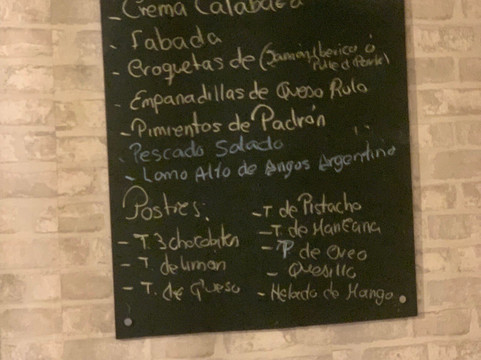 - Crema Calabaza
- Fabada
- Croquetas de (Jamón Iberico ó
Pulled Pork)
- Empanadillas de Queso Rulo
- Pimientos de Padrón
- Pescado Salado
- Lomo Alto de Angos Argentino
Postres:
- T. 3 chocolates
- T. de limon
- T. de Queso
- T. de Pistacho
- T. de Manzana
- P de Oreo
- Quesillo
- Helado de Mango